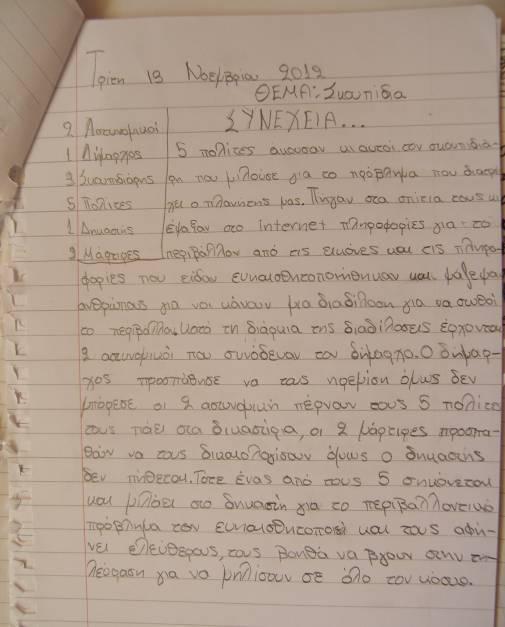 Τρίτη 13 Νοεμβρίου 2012
ΘΕΜΑ: Σκαπίδα
ΣΥΝΕΧΕΙΑ...
2 Αστυνομικοί
1 Δήμαρχος 5 πολίτες ακουσαν κι αυτοί τον σκαπιδιά-
3 Σκαπιδιάρης ρη που μιλούσε για το πρόβλημα που διατρέ
5 Πολίτες χει ο πλανητης μας. Πήγαν στα σπίτια τους κι
1 Δικαστής έψαξαν στο internet πληροφορίες για το
2 Μάρτιρες περιβάλλον από τις εικόνες και τις πληρο-
φορίες που είδαν ευαισθητοποιήθηκαν και μάζεψαν
ανθρώπους για να κάνουν μια διαδίλοση για να σωθεί
το περιβάλλον. Κατά τη διάρκια της διαδίλοσεις έρχονται
2 αστυνομικοί που συνόδευαν τον δήμαρχο. Ο δήμαρ-
χος προσπάθησε να τους ηρεμίση όμως δεν
μπόρεσε οι 2 αστυνομικοί πέρναν τους 5 πολίτες
τους πάει στα δικαστίρια, οι 2 μάρτιρες προσπα-
θούν να τους δικαιολογίσουν όμως ο δικαστής
δεν πήθεται. Τότε ένας από τους 5 σηκόνεται
και μιλάει στο δικαστή για το περιβαλλοντικό
πρόβλημα τον ευαισθητοποιεί και τους αφή-
νει ελεύθερους, τους βοηθά να βγουν στην τη-
λεόραση για να μηλίσουν σε όλο τον κόσμο.